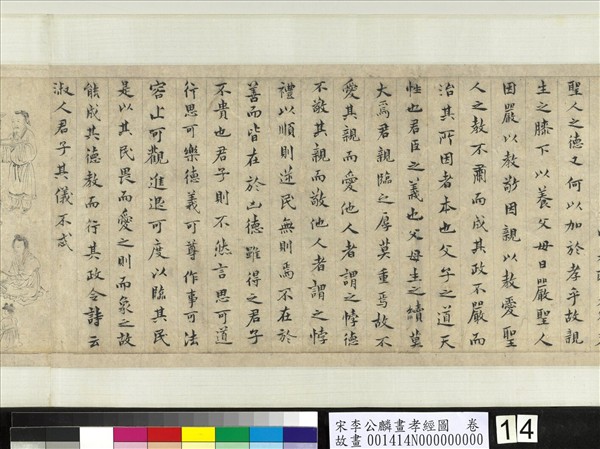 聖人之德又何以加於孝乎故親
生之膝下以養父母日嚴聖人
因嚴以教敬因親以教愛聖
人之教不肅而成其政不嚴而
治其所因者本也父子之道天
性也君臣之義也父母生之續莫
大焉君親臨之厚莫重焉故不
愛其親而愛他人者謂之悖德
不敬其親而敬他人者謂之悖
禮以順則逆民無則焉不在於
善而皆在於凶德雖得之君子
不貴也君子則不然言思可道
行思可樂德義可尊作事可法
容止可觀進退可度以臨其民
是以其民畏而愛之則而象之故
能成其德教而行其政令詩云
淑人君子其儀不忒
宋李公麟畫孝經圖 卷
故畫 001414N000000000
14